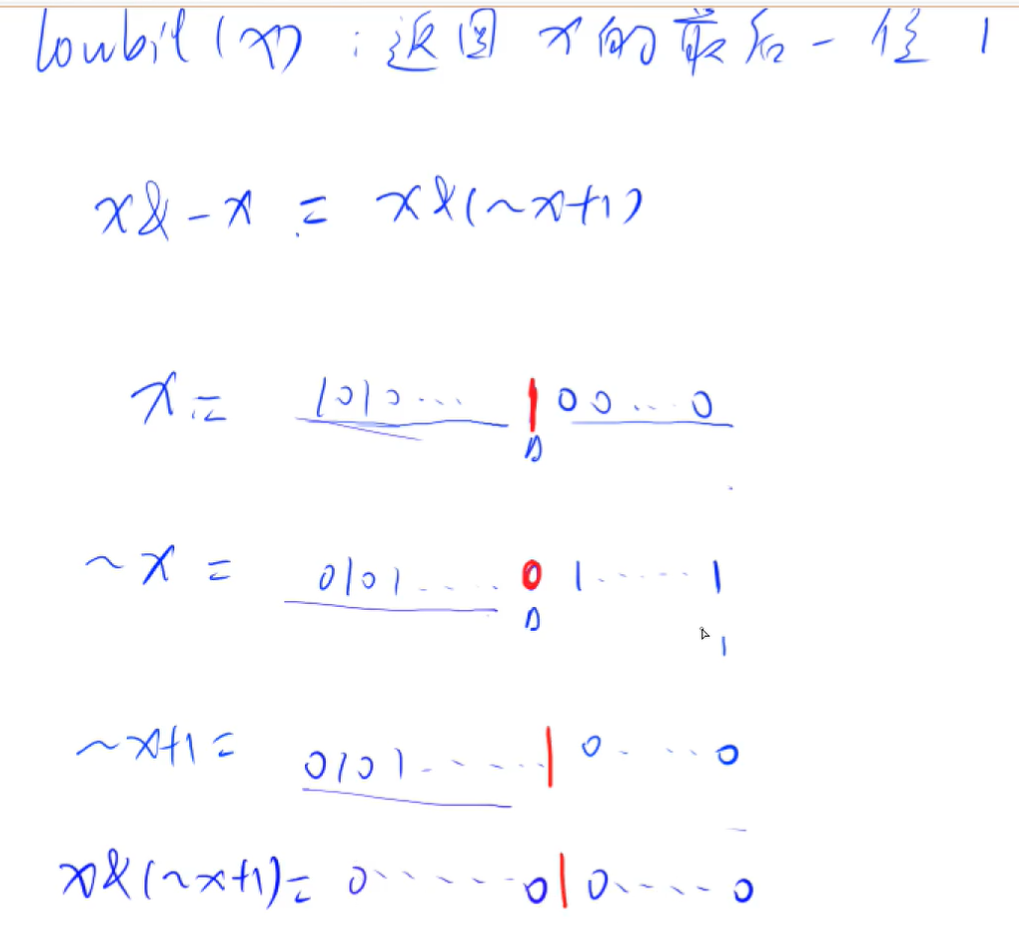 lowbit(x):返回 x的最后一位 1
x&-x = x&(~x+1)
x= 1010... 1 00...0
~x = 0101..... 0 1.....1
1
~x+1= 0101...... 1 0....0
x&(~x+1)= 0......0 1 0....0